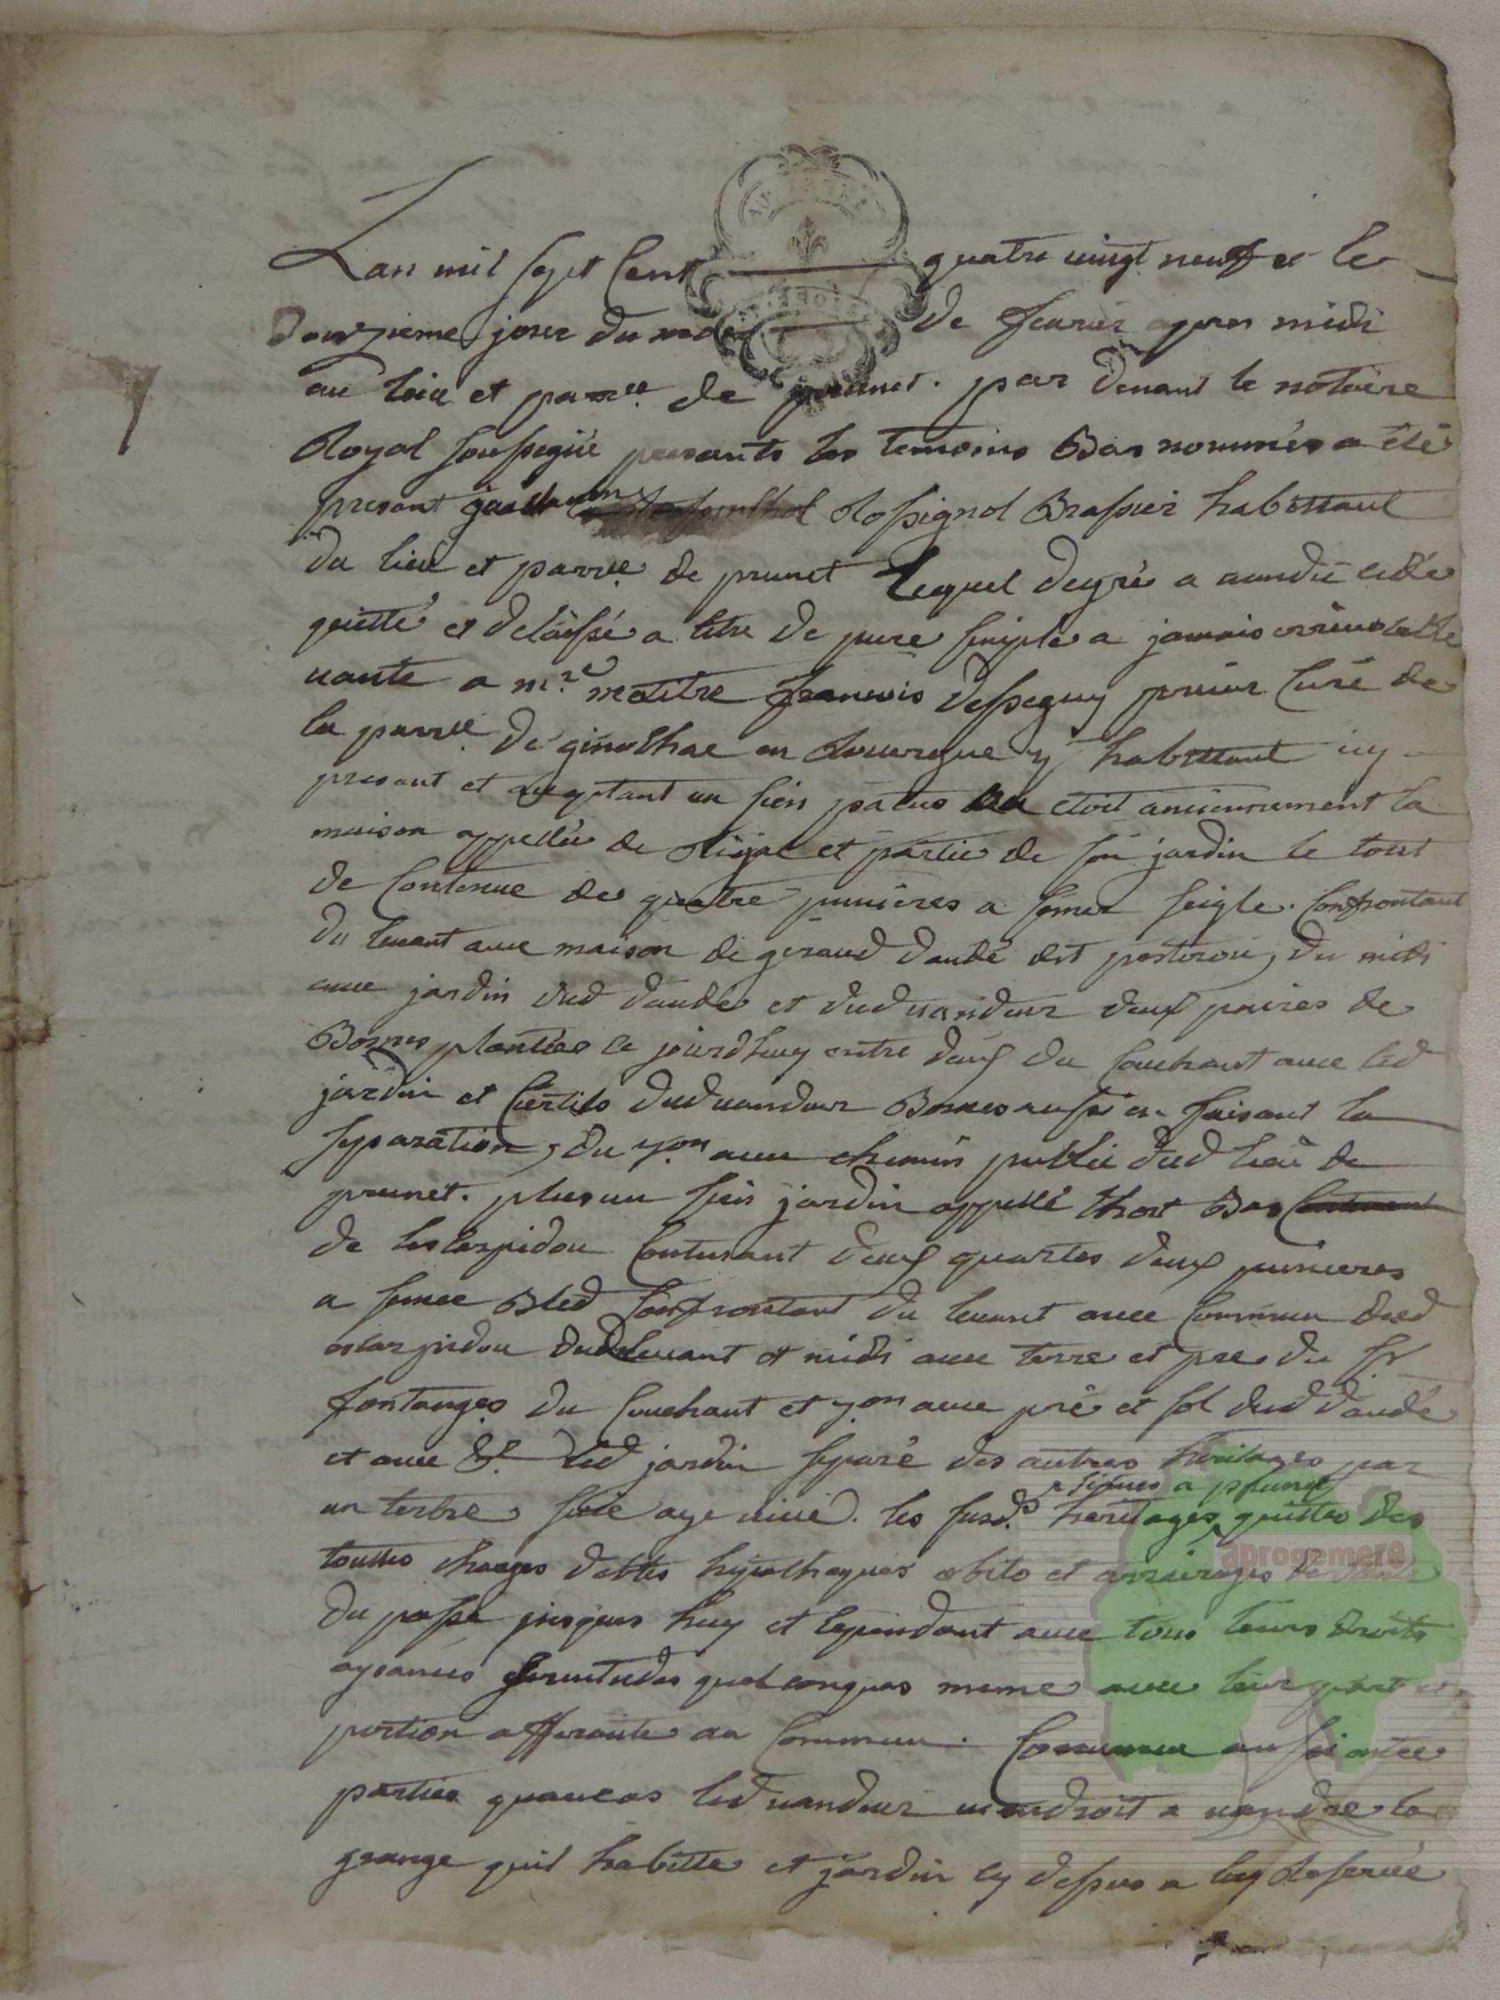 Lan mil sept Cent quatre vingt neuf et le
Douzieme jour du mois de fevrier apres midi
au lieu et parr.lle de prunet. par devant le notaire
Royal soussigné presants les temoins Bas nommés a été
presant Guill Rossignol Brassier habittant
du lieu et parr.lle de prunet Lequel degré a vandu cédé
quitté et delaissé a titre de pure simple a jamais irrevocable
vante a m.re maitre francois Desseguy prieur Curé de
la parr.lle de ginolhac en Rouergue y habittant icy
presant et aceptant un sien patus ou etoit anciennement la
maison appellée de Rigal et partie de son jardin le tout
de Contenue de quatre punieres a semer seigle. Confrontant
du levant avec maison de geraud daudé dit , du midi
avec jardin dud daudé et dud vandeur deux paires de
Bornes plantées ce jourdhuy entre deux du Couchant avec led
jardin et Certils dud vandeur Bornes aussi en faisant la
separation, du 7.on avec chemin public dud lieu de
prunet. plus un sien jardin appellé lhort Bas
de lestarpidou Contenant deux quartes deux punieres
a semer Bled Confrontant du levant avec Commun dud
estarpidou dud levant et midi avec terre et pre du Sr
fontanges du Couchant et 7.on avec pré et sol dud daudé
et avec led jardin separé des autres heritages par
un tertre aye vive. les susd.s heritages quittes des
situes a prunet
touttes charges debtes hypotheques obits et arreirages de
du passé jusques huy et Cependant avec tous leurs droits
aysances servitudes quelconques meme avec leur part et
portion afferante au Commun. Convenu aussi entre
parties quau cas led vandeur viendroit a vandre la
grange quil habitte et jardin cy dessus a luy Reservé
aprogemere